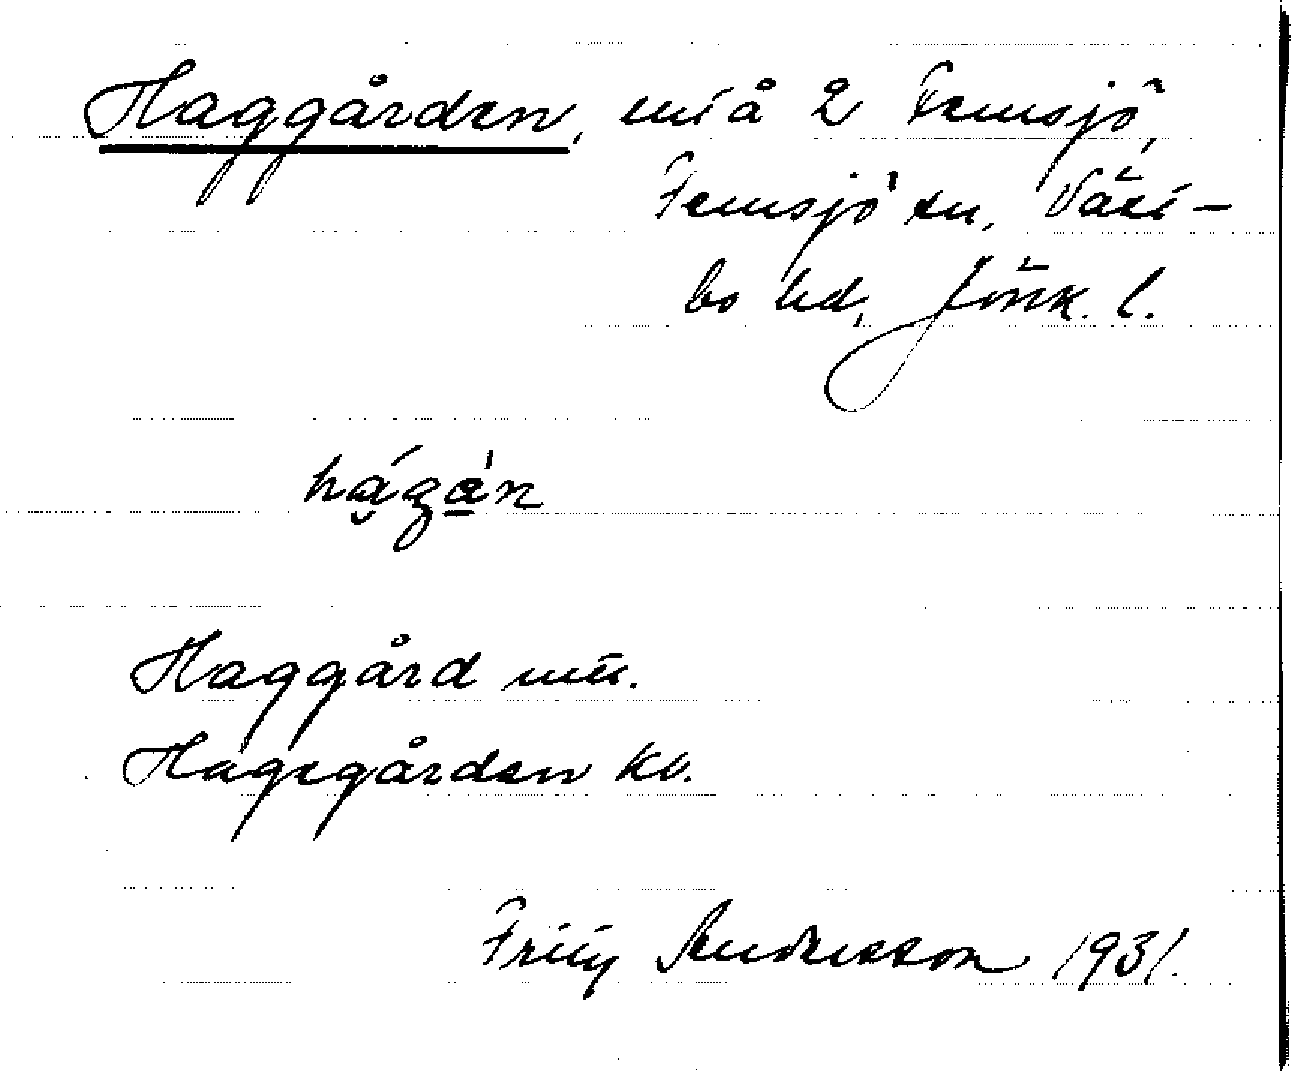 Haggården, mí å 2 Femsjö,
Femsjö sn, Västbo hd, Jönk. l.
Haggård mtl.
Hagegården kv.
Frity Andersson 1931.